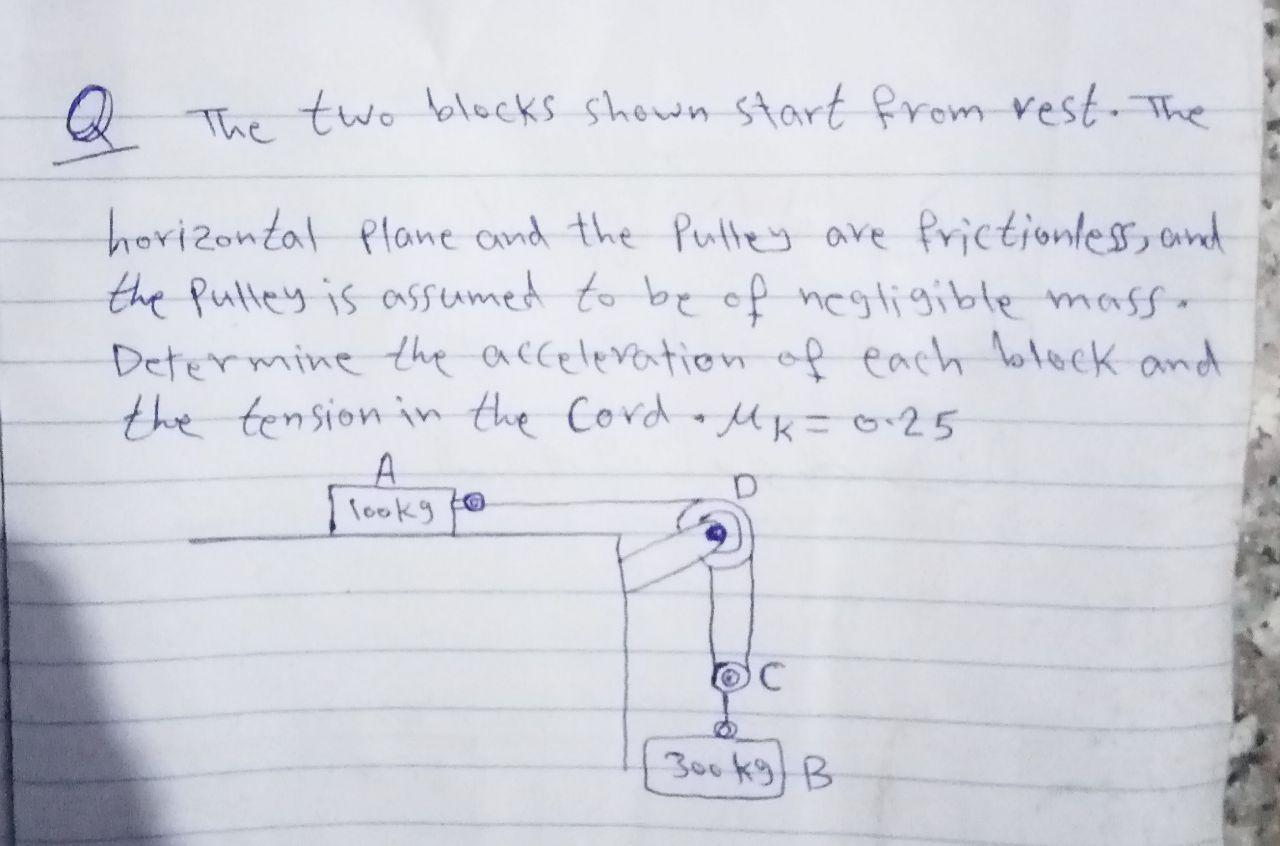 Q The two blocks shown start from rest. The
horizontal plane and the Pulley are frictionless, and
the Pulley is assumed to be of negligible mass.
Determine the acceleration of each block and
the tension in the Cord. μK = 0.25
A
100kg
D
C
300 kg B